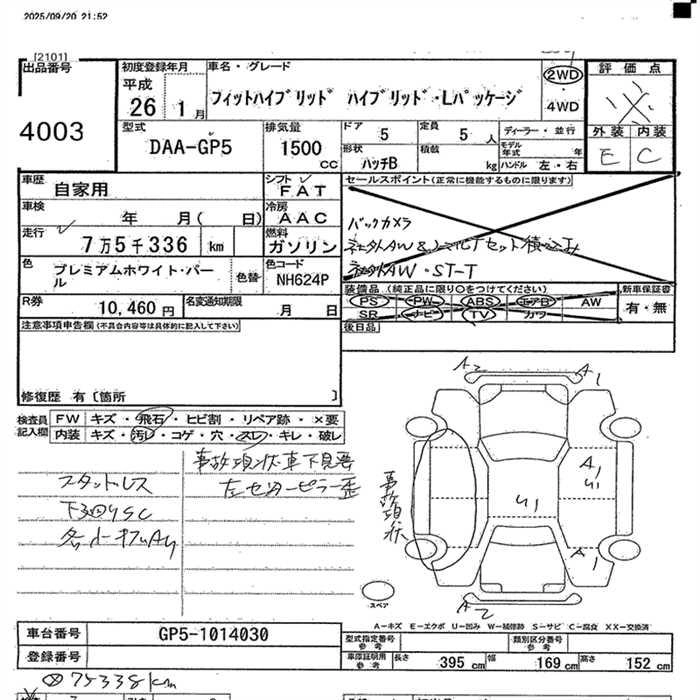 2025/09/20 21:52
[2101]
出品番号
4003
初度登録年月
平成
26 1月
車名・グレード
フィットハイブリッド ハイブリッド・Lパッケージ
2WD
・
4WD
評価点
※
外装 内装
E C
型式
DAA-GP5
排気量
1500
CC
ドア
5
定員
5 人
形状
ハッチB
積載
kg
ディーラー・並行
モデル年式 年
ハンドル 左・右
車歴
自家用
シフト
FAT
車検
年 月( 日)
冷房
AAC
走行
7万5千336 km
燃料
ガソリン
色
プレミアムホワイト・パール
色替
色コード
NH624P
R券
10,460円
名変通知期限
月 日
セールスポイント(正常に機能するものに限ります)
バックカメラ
社外AW
社外AW・ST-T
装備品(純正品に限り○をつけてください)
PS PW ABS エアB AW
SR ナビ TV カワ
新車保証書
有・無
後日品
注意事項申告欄(不具合内容等は具体的に記入して下さい)
修復歴 有〔箇所 〕
検査員記入欄
FW キズ・飛石・ヒビ割・リペア跡・×要
内装 キズ・汚レ・コゲ・穴・スレ・キレ・破レ
スタットレス
下回りSC
事故現状車下見要
左センターピラー歪
事故現状
A2
A1
A1
U1
U1
A1
A2
スペア
A-キズ E-エクボ U-凹み W-補修跡 S-サビ C-腐食 XX-交換済
車台番号
GP5-1014030
登録番号
型式指定番号
参考
類別区分番号
参考
車庫証明用
参考
長さ 395cm 幅 169cm 高さ 152cm
75338km